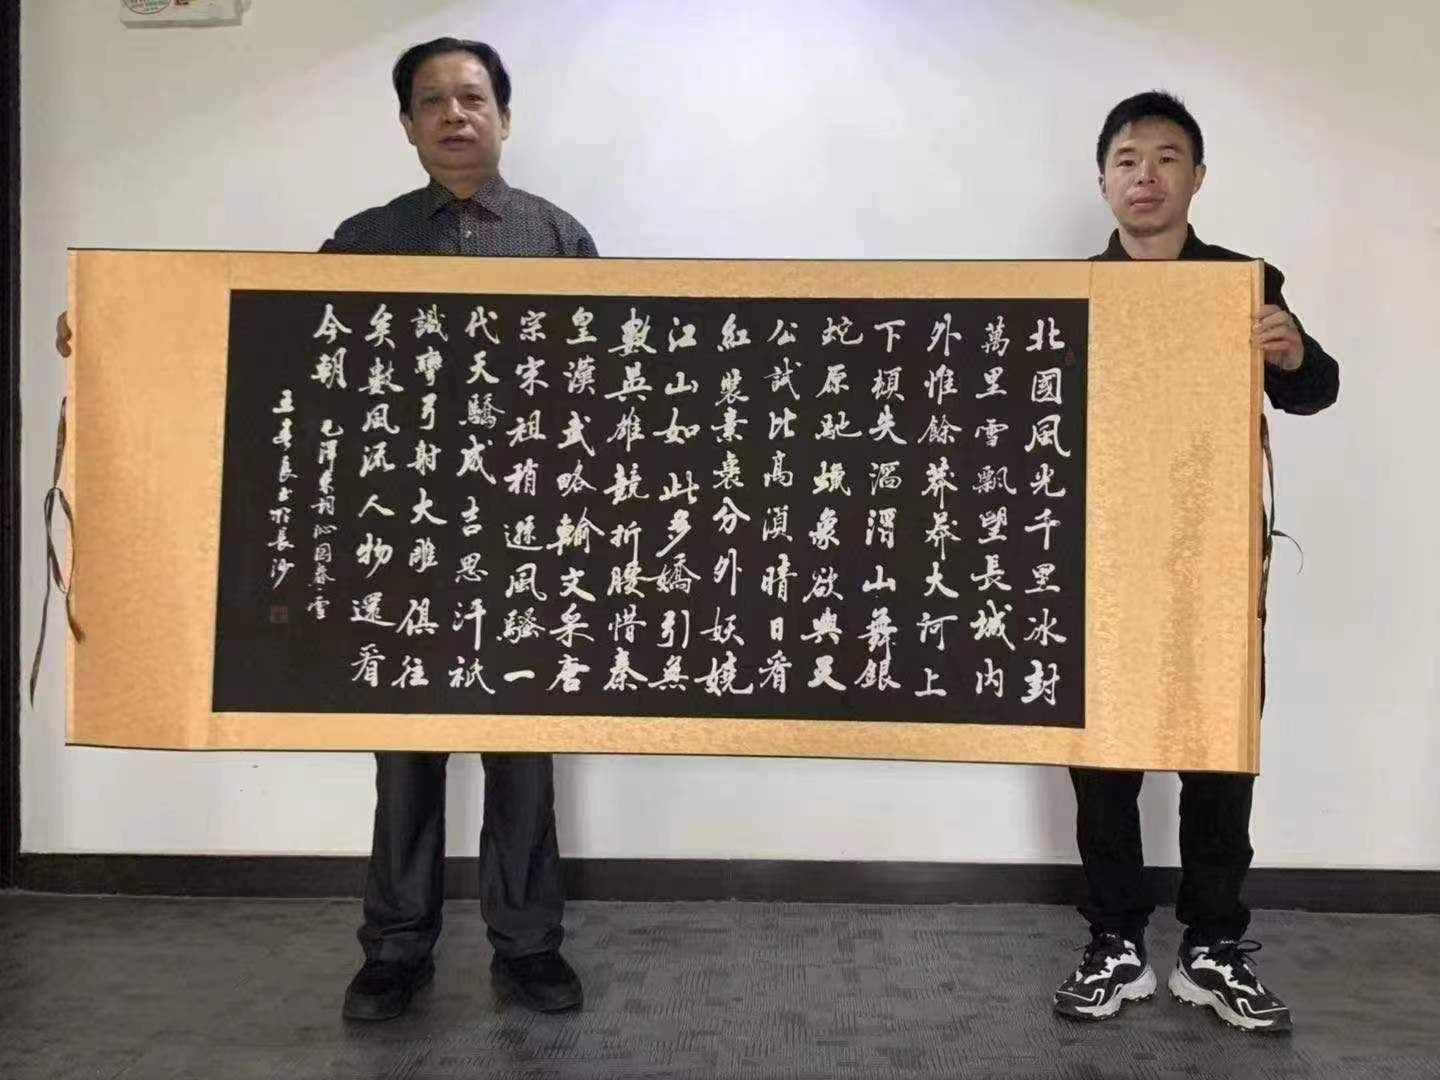 北國風光千里冰封
萬里雪飄望長城内
外惟餘莽莽大河上
下頓失滔滔山舞銀
蛇原馳蠟象欲與天
公試比高須晴日看
紅裝素裹分外妖嬈
江山如此多嬌引無
數英雄競折腰惜秦
皇漢武略輸文采唐
宗宋祖稍遜風騷一
代天驕成吉思汗祇
識彎弓射大雕俱往
矣數風流人物還看
今朝 毛澤東詞沁園春·雪
良書於長沙